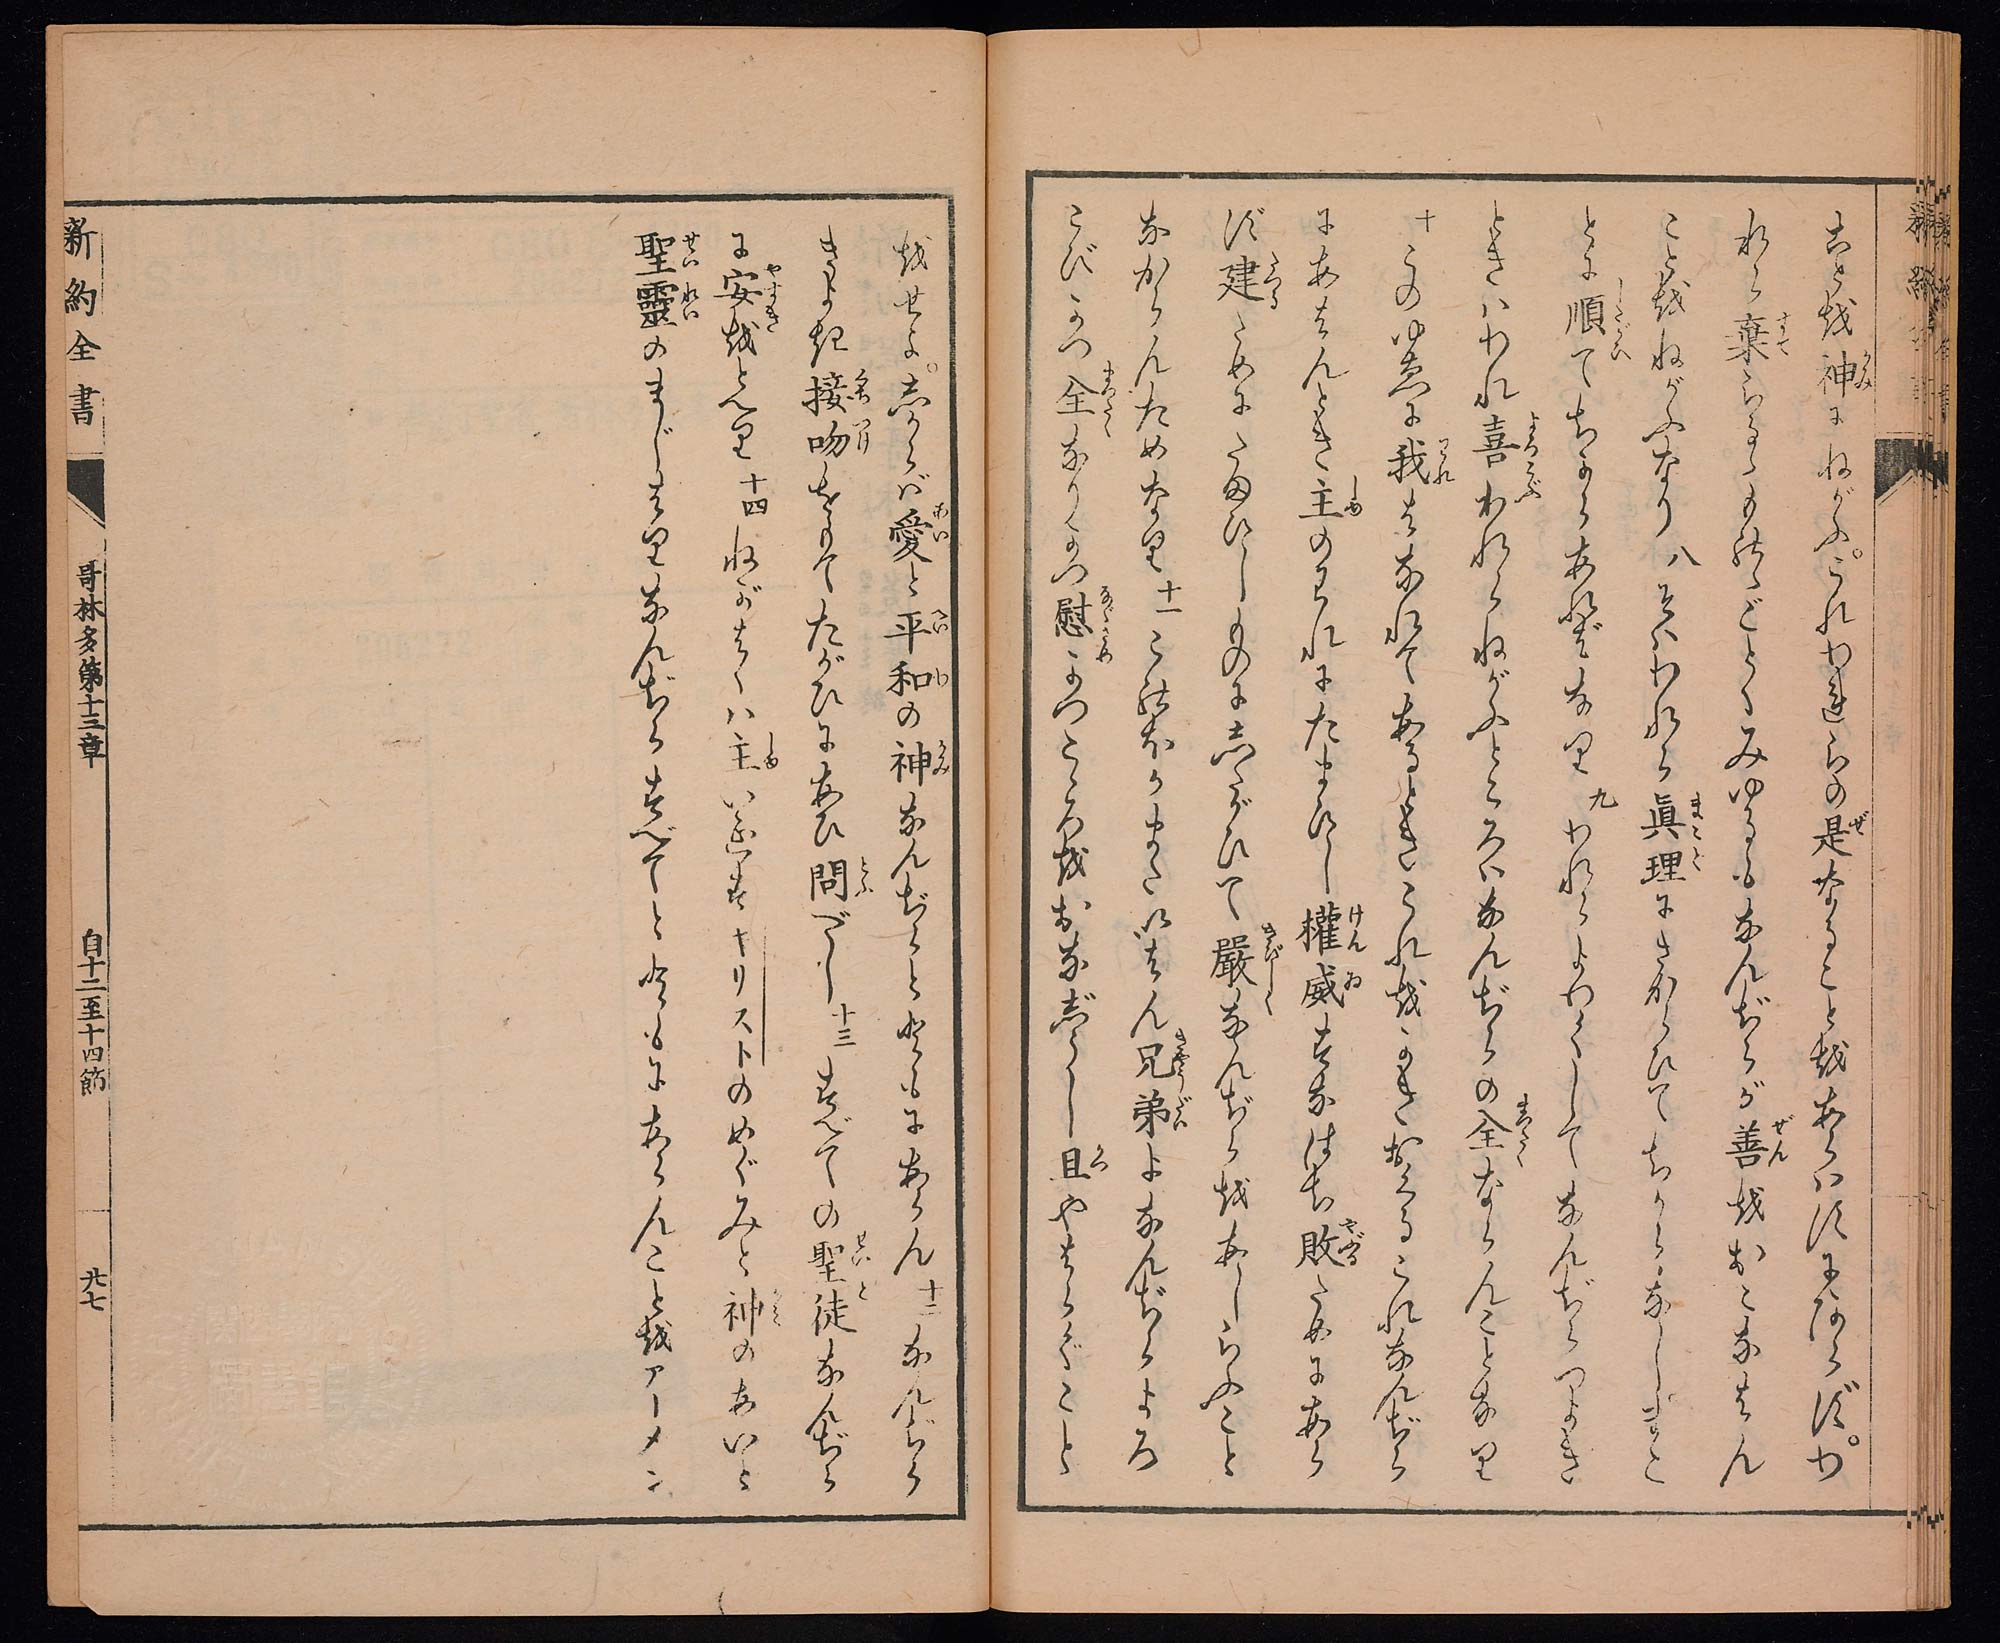 を神にねがふ。これわれらの是なることをあらはすにあらず。わ
れら棄らるゝものゝごとくみゆるもなんぢらが善をおこなはん
ことをねがふなり 八 そはわれら眞理にさからひてちからなしまこ
とに順てちからあればなり 九 われらよわくしてなんぢらつよき
ときハわれ喜われらねがふところハなんぢらの全ならんことなり
十 このゆゑに我はなれてあるときこれをかきおくるこれなんぢら
にあはんとき主のわれにたまひし權威すなはち敗ためにあら
ず建ためにたまひしものにしたがひて嚴なんぢらをあしらふこと
なからんためなり 十一 このほかまたいはん兄弟よなんぢらよろ
こびかつ全なりかつ慰かつこゝろをおなじうし且やはらぐこと
をせよ。しからバ愛と平和の神なんぢらとともにあらん 十二 なんぢら
きよき接吻をもてたがひにあひ問べし 十三 すべての聖徒なんぢら
に安をとへり 十四 ねがはくハ主いゑすキリストのめぐみと神のあいと
聖靈のまじはりなんぢらすべてとともにあらんことをアーメン
新約全書
哥林多第十三章
自十二至十四節
廿七